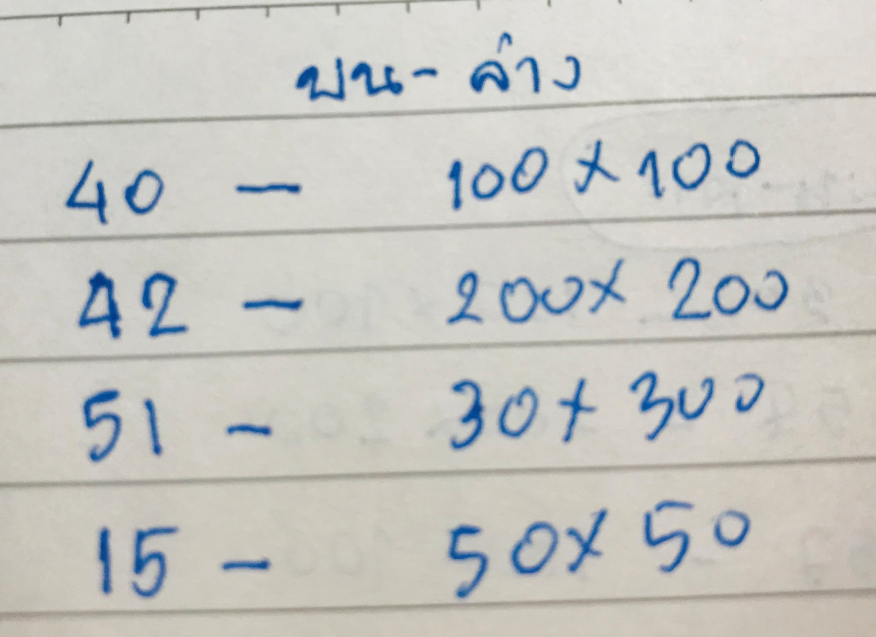 บน - ล่าง
40 - 100 x 100
42 - 200 x 200
51 - 30 x 300
15 - 50 x 50